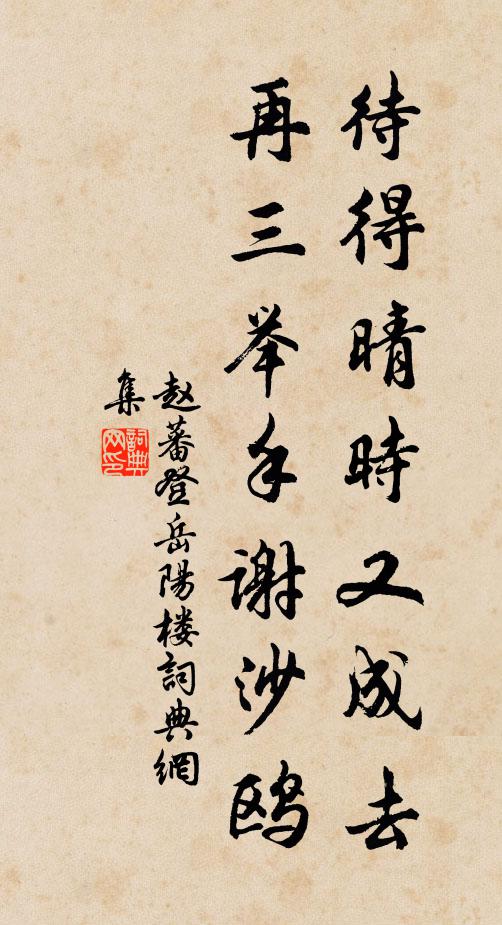 待得晴時又成去
再三举手谢沙鸥
赵蕃登岳陽楼詞典網
集
詞典网印